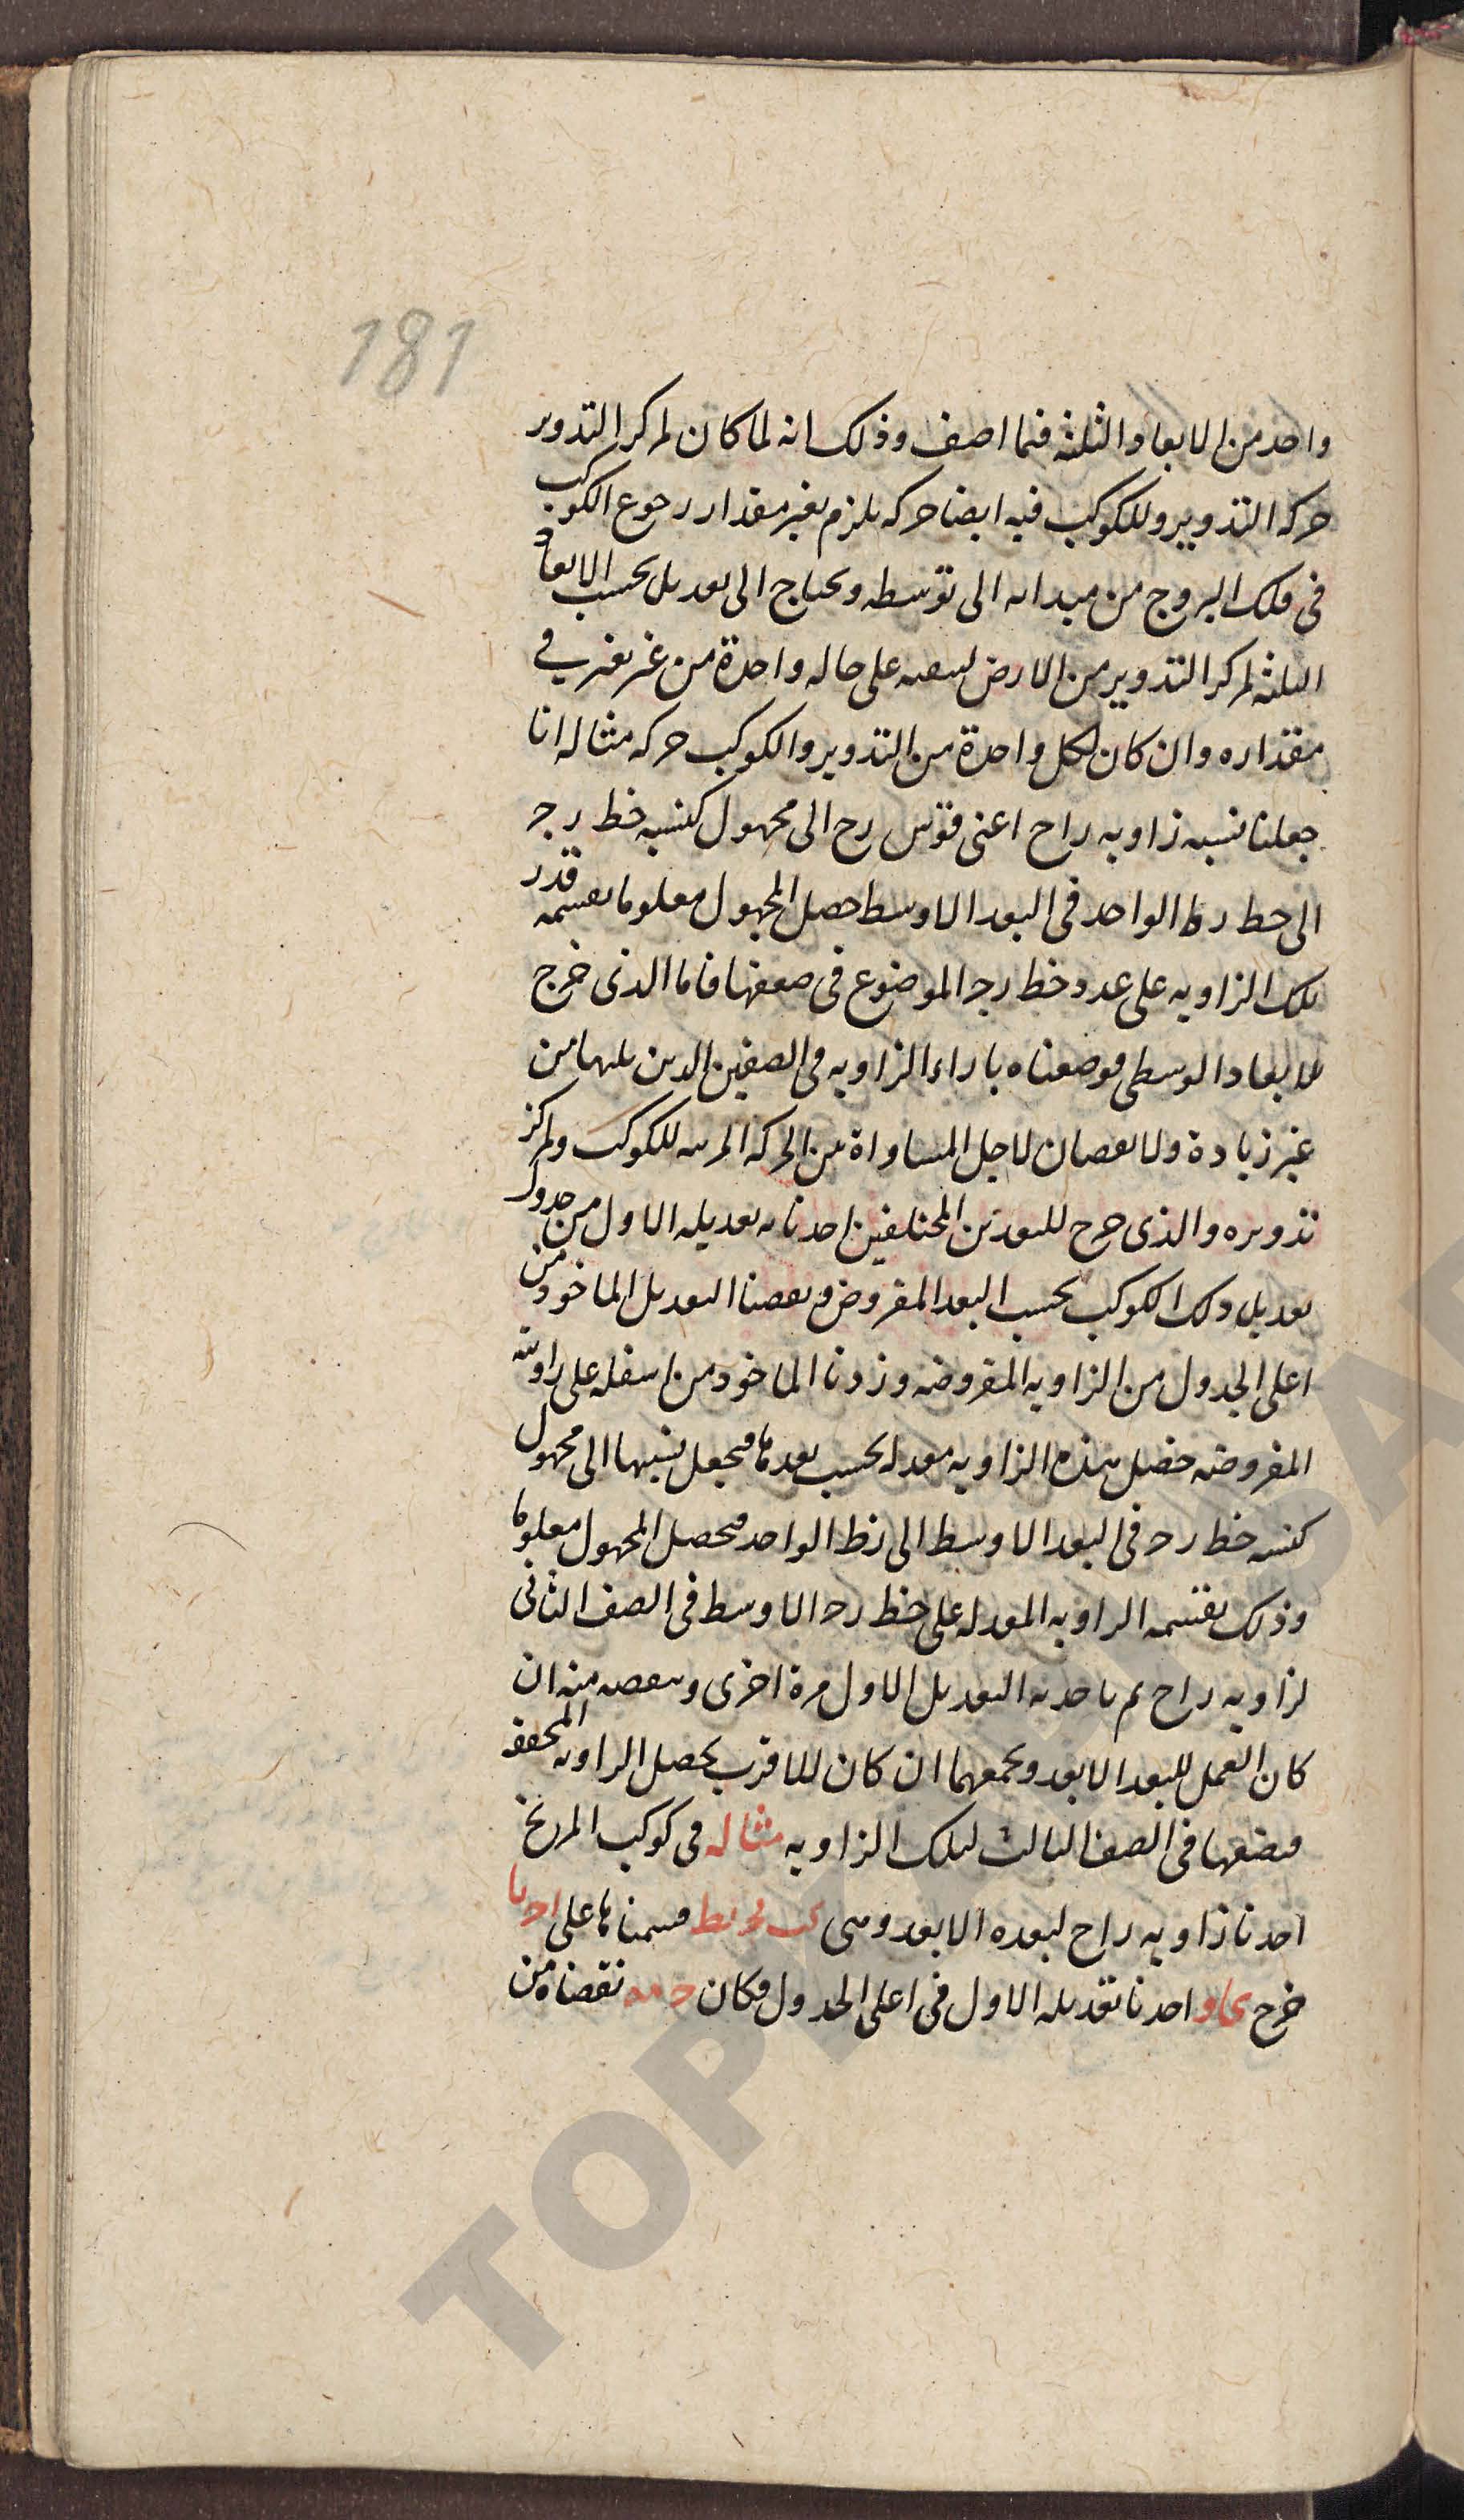 181
واحد من الابعاد الثلثة فيما اصف وذلك انه لما كان لمركز التدوير
حركه التدوير وللكوكب فيه ايضا حركه يلزم تغير مقدار رجوع الكوكب
فى فلك البروج من مبدائه الى توسطه ويحتاج الى تعديل بحسب الابعاد
الثلثه لمركز التدوير من الارض على حاله واحدة من غير تغير في
مقداره وان كان لكل واحدة من التدوير والكوكب حركه مثاله انا
جعلنا نسبه زاويه راح اعنى قوس رح الى مجهول كنسبه خط رج
الى خط رط الواحد فى البعد الاوسط حصل المجهول معلوما بقسمه قدر
تلك الزاويه على عدد خط رج الموضوع فى صفها فاما الذى خرج
للابعاد الوسطى فوضعناه بازاء الزاويه فى الصفين الذين يليها من
غير زيادة ولا نقصان لاجل المساواة من الحركه للكوكب ولمركز
تدويره والذى خرج للبعدين المختلفين اخذنا به تعديله الاول من جدول
تعديل ذلك الكوكب بحسب البعد المفروض ونقصنا التعديل الماخوذ من
اعلى الجدول من الزاويه المفروضه وزدنا الماخوذ من اسفله على زاويته
المفروضه حصل بهذه الزاويه معدله بحسب بعدها فنجعل نسبتها الى مجهول
كنسبه خط رح فى البعد الاوسط الى رط الواحد فيحصل المجهول معلوما
وذلك بقسمه الزاويه المعدله على خط رح الاوسط فى الصف الثانى
لزاويه راح ثم ناخذ به التعديل الاول مرة اخرى وننقصه منه ان
كان العمل للبعد الابعد ونجمعهما ان كان للاقرب يحصل الزاويه المحققه
فنضعها فى الصف الثالث لتلك الزاويه مثاله فى كوكب المريخ
اخذنا زاويه راح لبعده الابعد وهى قسمناها على
خرج واخذنا تعديله الاول فى اعلى الجدول فكان نقصناه من